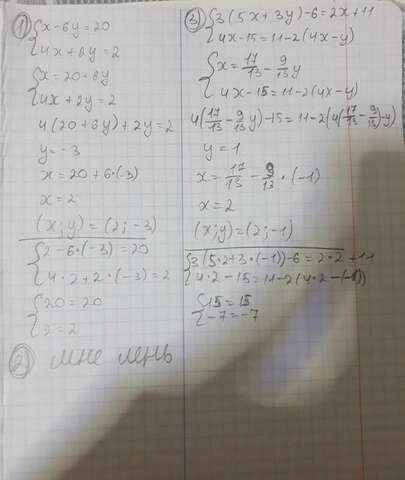 1) { x-6y=20
4x+2y=2
{ x=20+6y
4x+2y=2
4(20+6y)+2y=2
y=-3
x=20+6·(-3)
x=2
(x;y)=(2;-3)
{ 2-6·(-3)=20
4·2+2·(-3)=2
{ 20=20
2=2
2) мне лень
3) { 3(5x+3y)-6=2x+11
4x-15=11-2(4x-y)
{ x=17/13-9/13y
4x-15=11-2(4x-y)
4(17/13-9/13y)-15=11-2(4(17/13-9/13)-y)
y=1
x=17/13-9/13·(-1)
x=2
(x;y)=(2;-1)
{ 3(5·2+3·(-1))-6=2·2+11
4·2-15=11-2(4·2-(-1))
{ 15=15
-7=-7